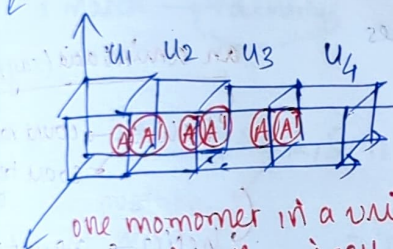 U1 U2 U3 U4
A A' A A' A A'
one momomer in a uni